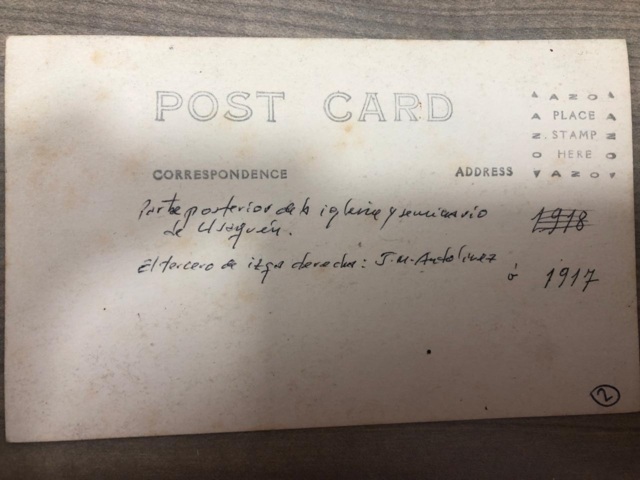 POST CARD
AZO
PLACE
STAMP
HERE
AZO
CORRESPONDENCE
ADDRESS
Parte posterior de la iglesia y seminario
de Usaquén.
1918
El tercero de izqa derecha: J.M. Antolinez
ó 1917
2